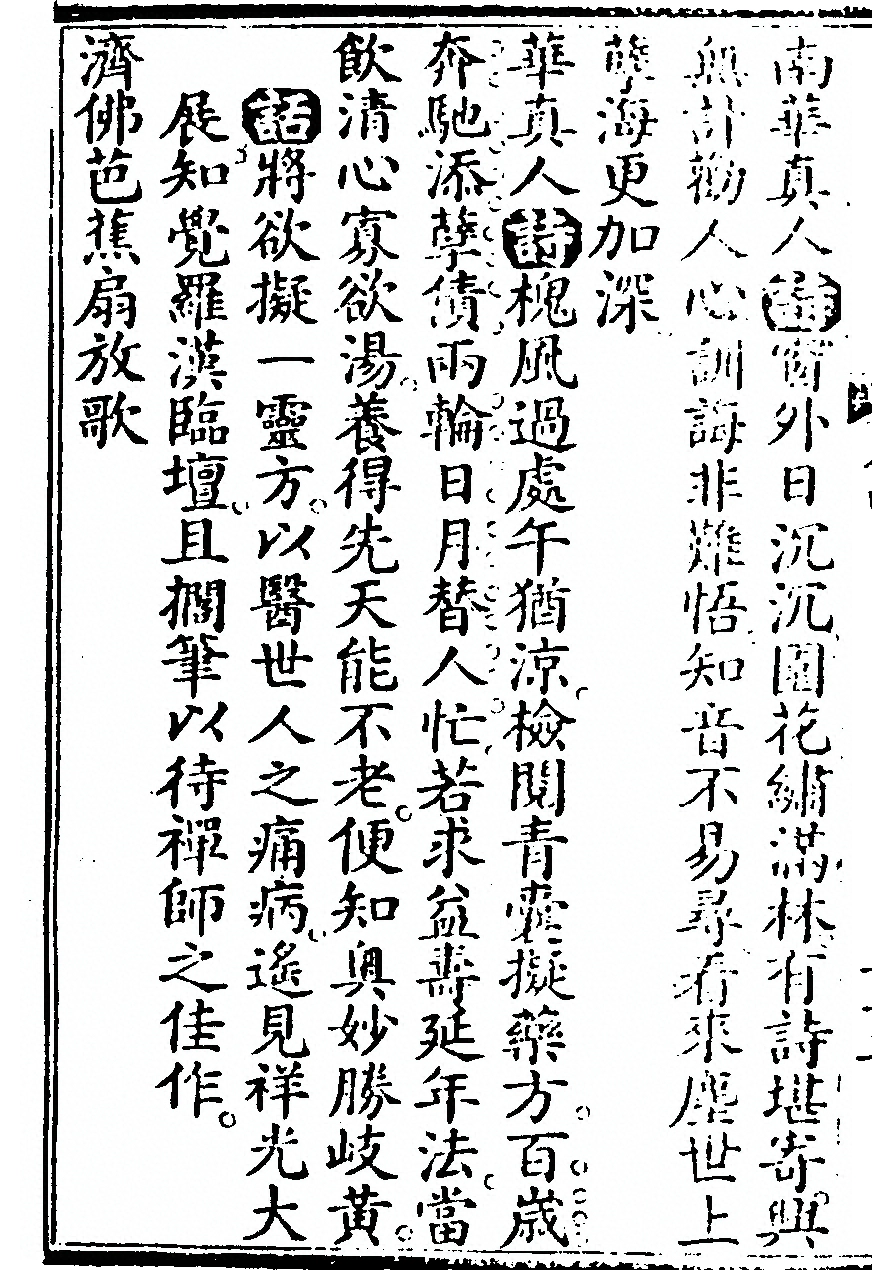 南華真人詩窗外日沉沉園花繡滿林有詩堪寄興
無計勸人心訓誨非難悟知音不易尋看來塵世上
孽海更加深
華真人詩槐風過處午猶涼檢閱青囊擬藥方百歲
奔馳添孽債兩輪日月替人忙若求益壽延年法當
飲清心寡欲湯養得先天能不老便知奧妙勝岐黃
話將欲擬一靈方以醫世人之痛病遙見祥光大
展知覺羅漢臨壇且擱筆以待禪師之佳作
濟佛芭蕉扇放歌